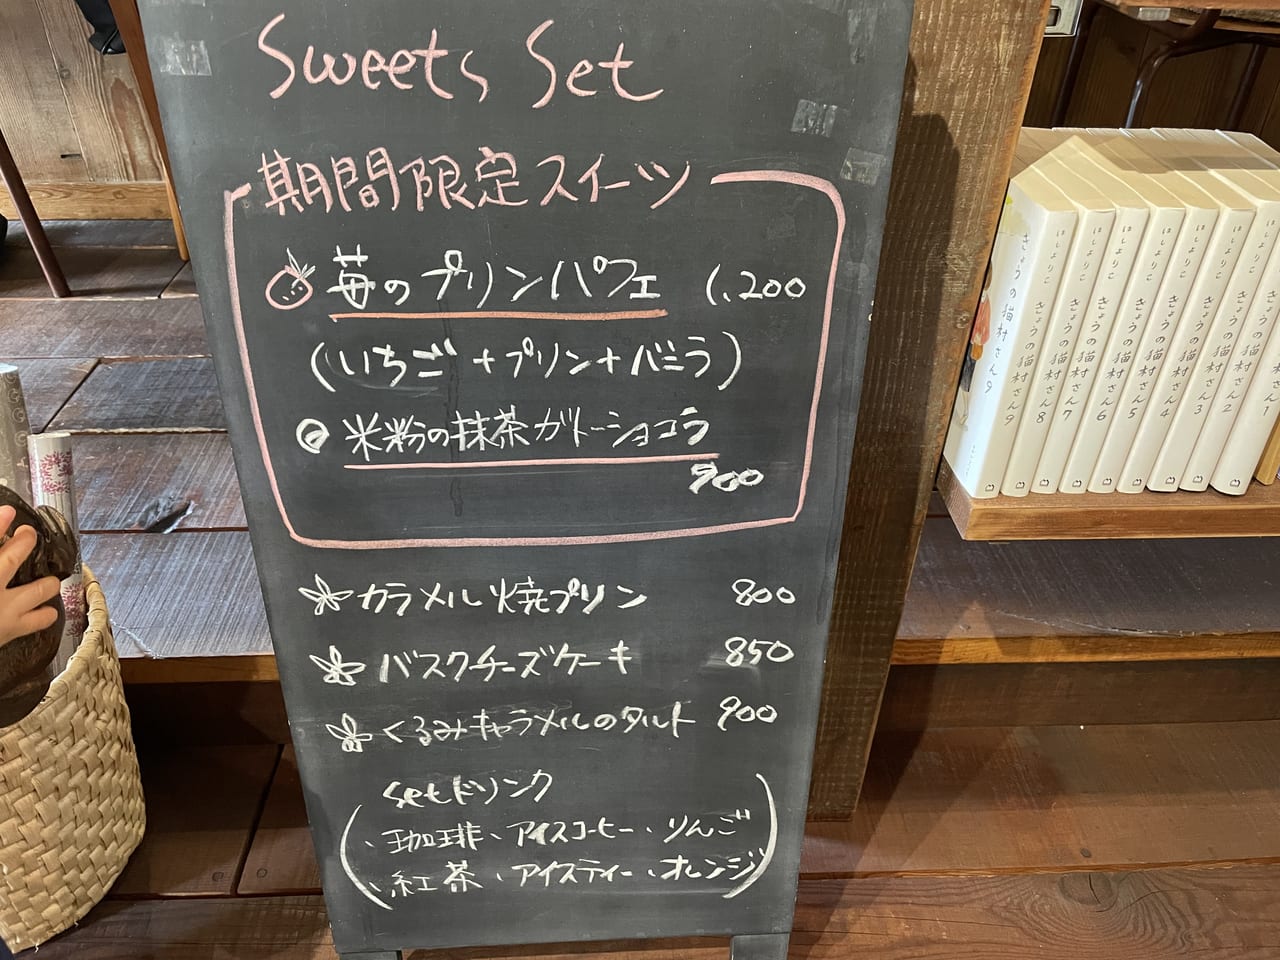 Sweets Set
期間限定スイーツ
苺のプリンパフェ 1,200
(いちご+プリン+バニラ)
米粉の抹茶ガトーショコラ
900
カラメル焼プリン 800
バスクチーズケーキ 850
くるみキャラメルのタルト 900
setドリンク
・珈琲・アイスコーヒー・りんご
・紅茶・アイスティー・オレンジ
きょうの猫村さん 9
ほしよりこ きょうの猫村さん 9
ほしよりこ きょうの猫村さん 8
ほしよりこ きょうの猫村さん 7
ほしよりこ きょうの猫村さん 6
ほしよりこ きょうの猫村さん 5
ほしよりこ きょうの猫村さん 4
ほしよりこ きょうの猫村さん 3
ほしよりこ きょうの猫村さん 2
ほしよりこ きょうの猫村さん 1